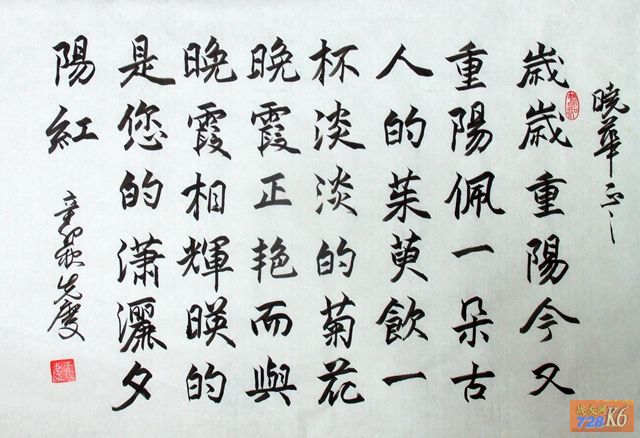 曉華正之
歲歲重陽今又
重陽佩一朵古
人的茱萸飲一
杯淡淡的菊花
晚霞正艳而與
晚霞相輝暎的
是您的潇灑夕
陽紅
先慶
战友网
728K6